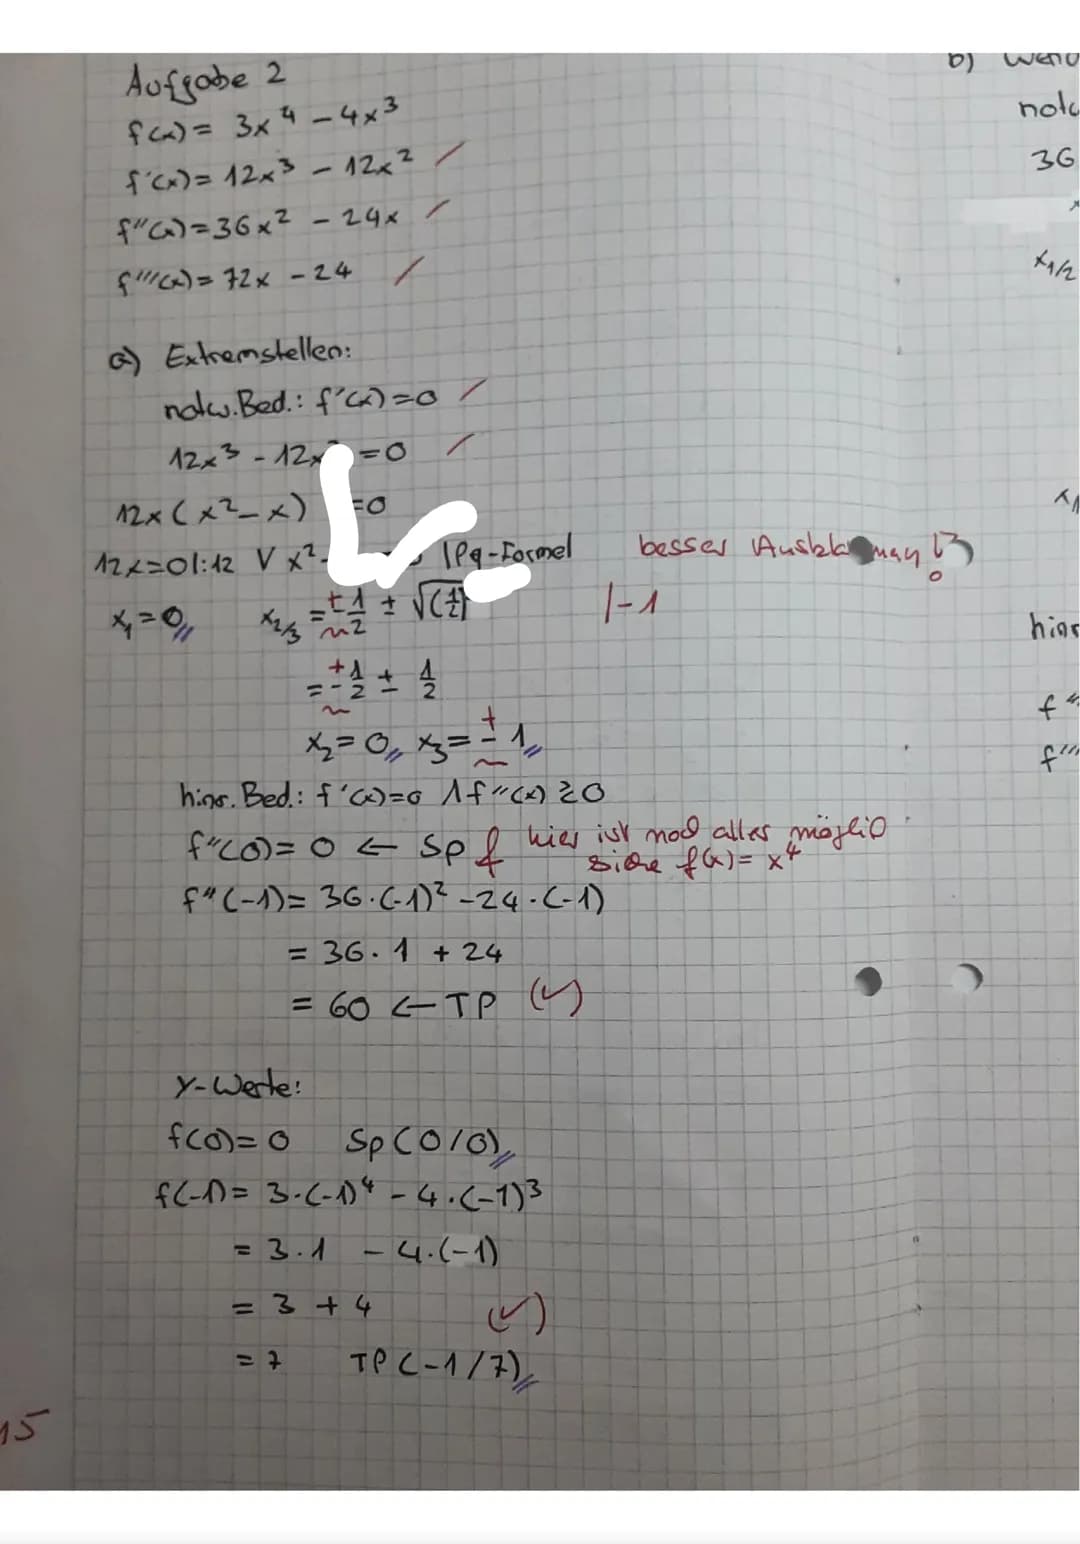 Aufgabe 2
f(x) = 3x⁴ - 4x³
f'(x) = 12x³ - 12x²
f''(x) = 36x² - 24x
f'''(x) = 72x - 24
a) Extremstellen:
notw. Bed.: f'(x)=0
12x³ - 12x =0
12x(x²-x) =0
12x=0 |:12 V x² |Pq-Formel besser
x₁=0 x₂/₃ = +-1/2 ± √(1/2) |-1
= +-1/2 ± 1/2
x₂=0, x₃= +-1
hinr. Bed.: f'(x)=0 ∧ f''(x) ≷0
f''(0)= 0 ← Sp f hier ist noch alles möglich
siehe f(x)= x⁴
f''(-1)= 36·(-1)² -24·(-1)
= 36·1 + 24
= 60 ← TP (✓)
y-Werte:
f(0)=0 Sp(0/0)
f(-1)= 3·(-1)⁴ - 4·(-1)³
= 3·1 - 4·(-1)
= 3 + 4 (✓)
= 7 TP(-1/7)
15
b)
36
x₁/₂
f'''